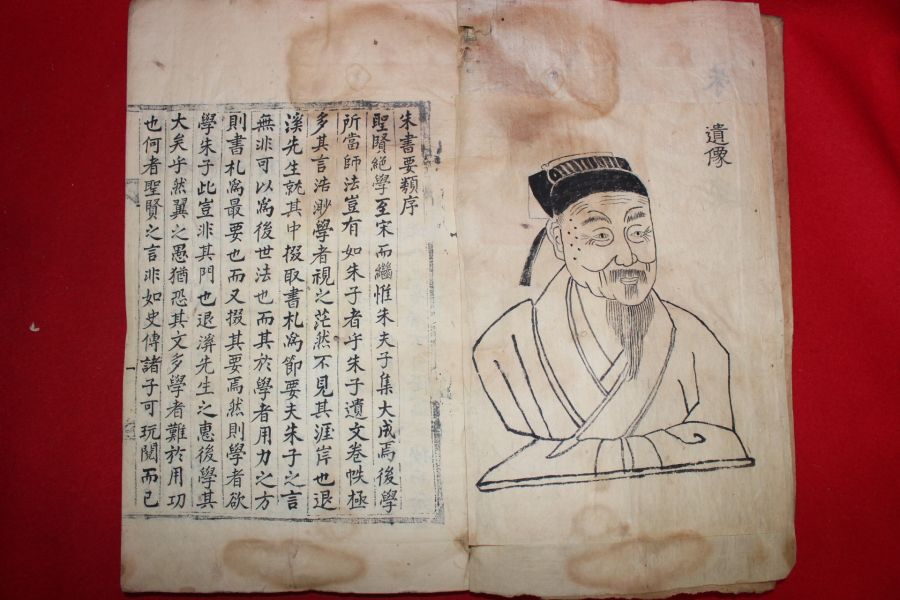 遺像
朱書要類序
聖賢絕學至宋而繼惟朱夫子集大成焉後學
所當師法豈有如朱子者乎朱子遺文卷帙極
多其言浩渺學者視之茫然不見其涯岸也退
溪先生就其中掇取書札為節要夫朱子之言
無非可以為後世法也而其於學者用力之方
則書札為最要也而又掇其要焉然則學者欲
學朱子此豈非其門也退溪先生之惠後學其
大矣乎然翼之愚猶恐其文多學者難於用功
也何者聖賢之言非如史傳諸子可玩閱而已